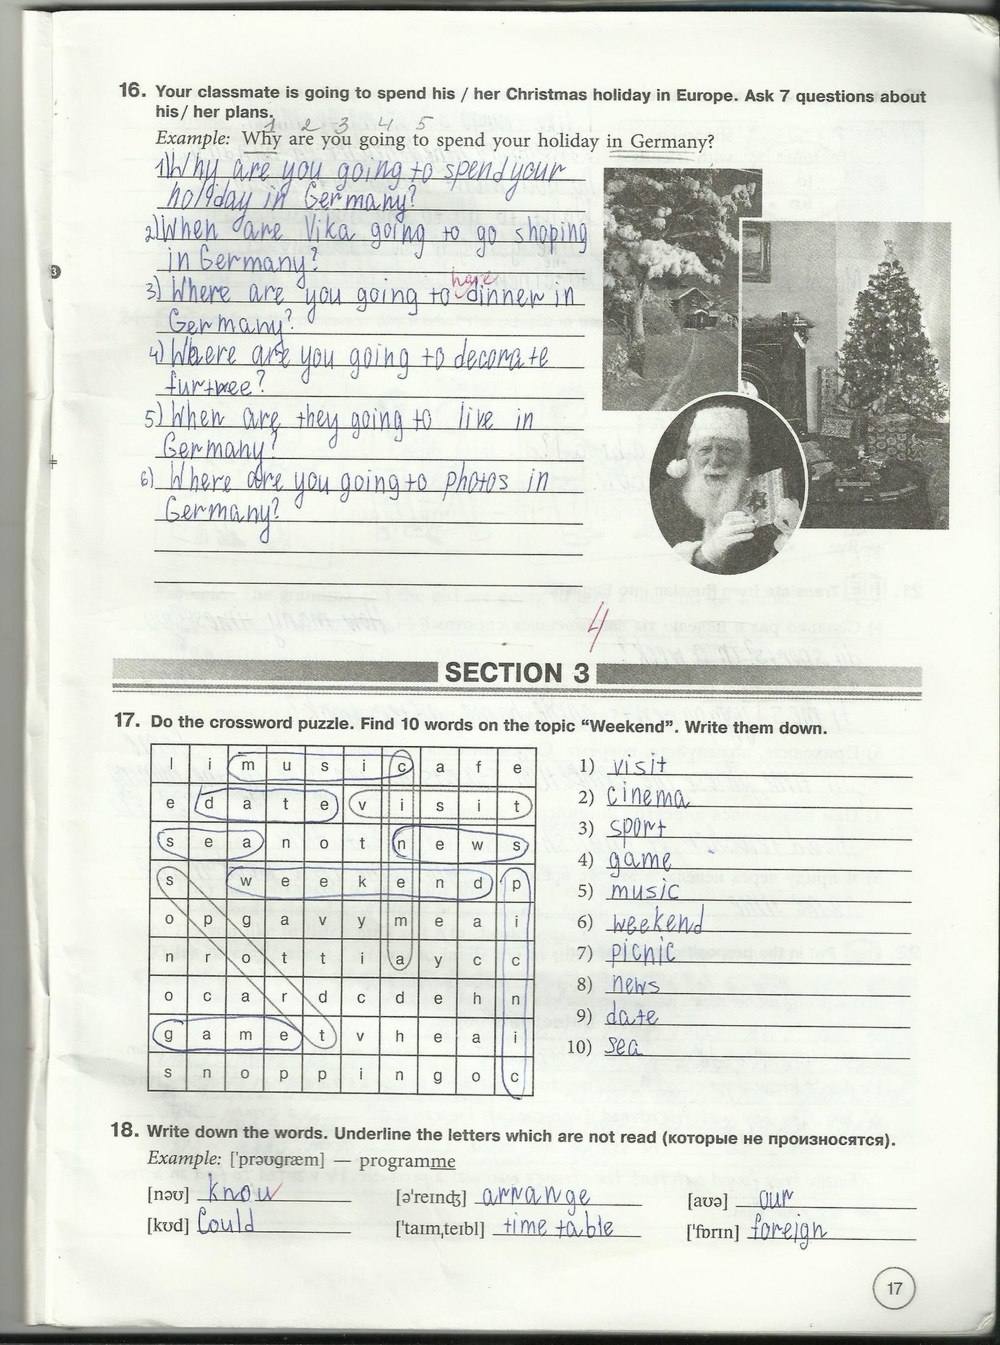 16. Your classmate is going to spend his / her Christmas holiday in Europe. Ask 7 questions about
his / her plans.
1 2 3 4 5
Example: Why are you going to spend your holiday in Germany?
1) Why are you going to spend your
holiday in Germany?
2) When are Vika going to go shoping
in Germany?
have
3) Where are you going to dinner in
Germany?
4) Where are you going to decorate
furtree?
5) When are they going to live in
Germany?
6) Where are you going to photos in
Germany?
4
SECTION 3
17. Do the crossword puzzle. Find 10 words on the topic “Weekend”. Write them down.
l i m u s i c a f e
e d a t e v i s i t
s e a n o t n e w s
s w e e k e n d p
o p g a v y m e a i
n r o t t i a y c c
o c a r d c d e h n
g a m e t v h e a i
s n o p p i n g o c
1) visit
2) cinema
3) sport
4) game
5) music
6) weekend
7) picnic
8) news
9) date
10) sea
18. Write down the words. Underline the letters which are not read (которые не произносятся).
Example: ['prəʊgræm] — programme
[nəʊ] know [ə'reɪnʤ] arrange [aʊə] our
[kʊd] Could ['taɪm,teɪbl] time table ['fɒrɪn] foreign
17